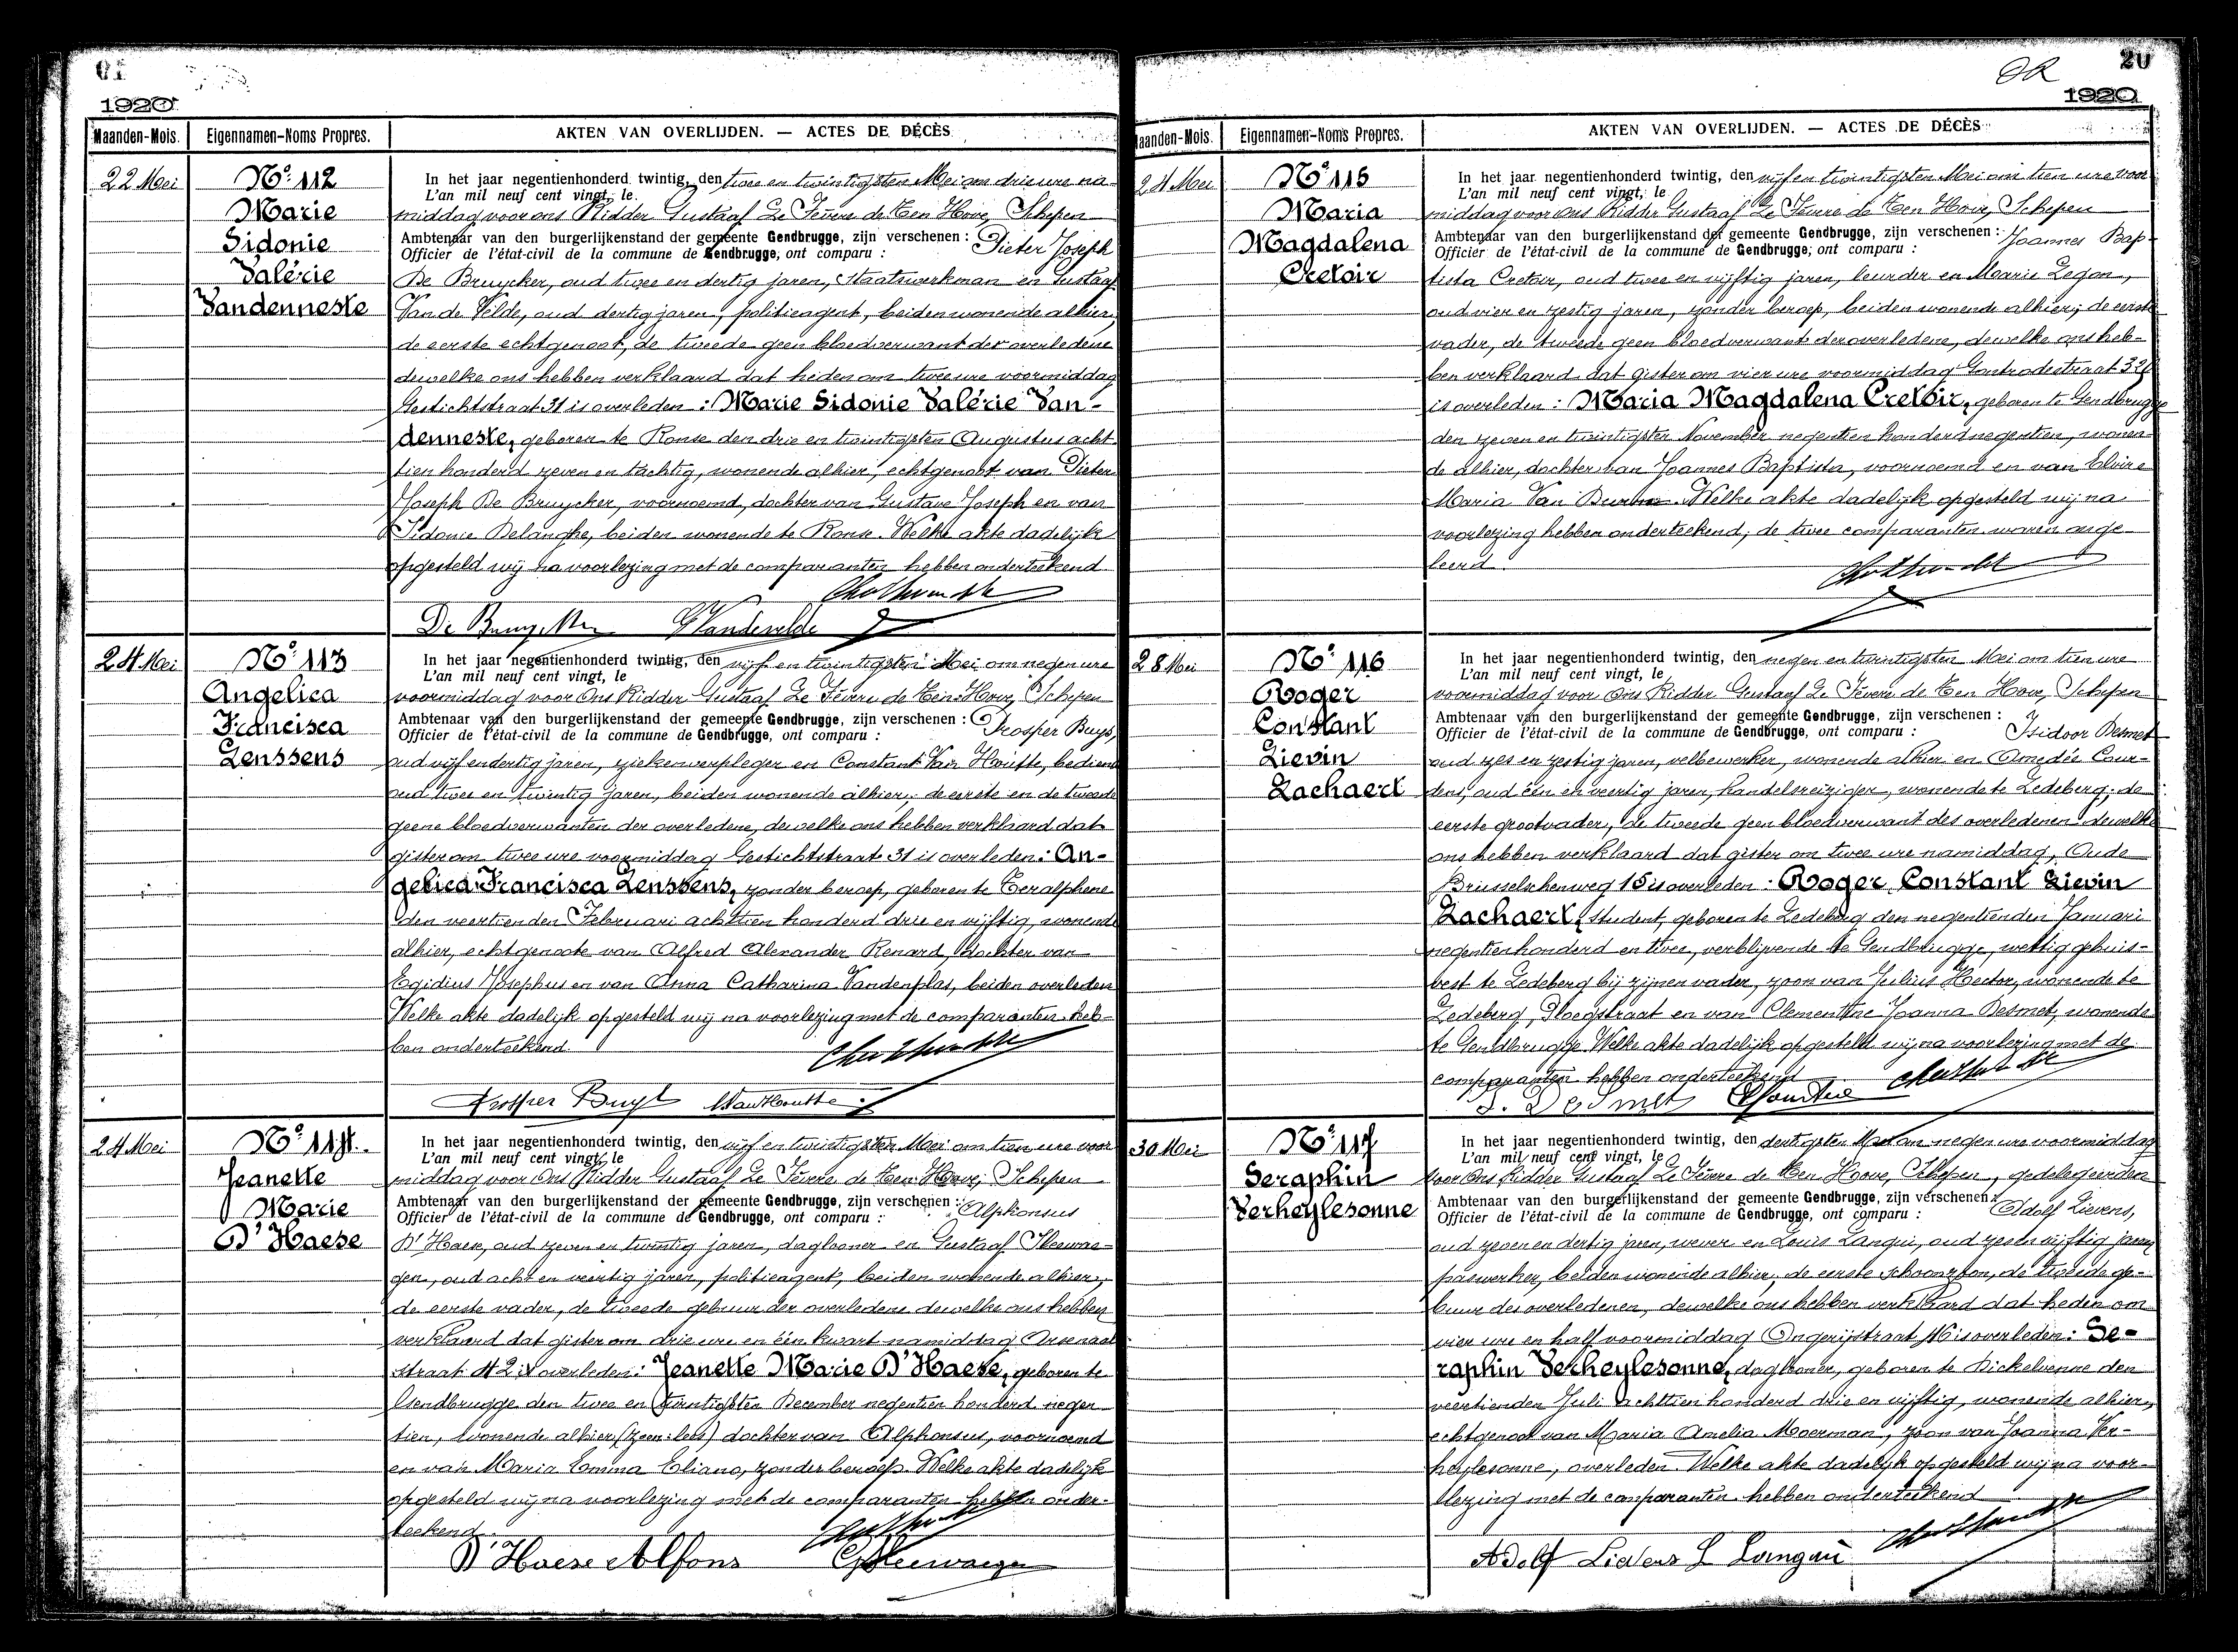 1920
Maanden-Mois. Eigennamen-Noms Propres. AKTEN VAN OVERLIJDEN. — ACTES DE DÉCÈS
22 Mei
No 112
Marie
Sidonie
Valérie
Vandenneste
In het jaar negentienhonderd twintig, den twee en twintigsten Mei om drie ure na-
L'an mil neuf cent vingt, le
middag voor ons Ridder Gustaaf Le Fèvere de Ten Hove, Schepen
Ambtenaar van den burgerlijkenstand der gemeente Gendbrugge, zijn verschenen : Pieter Joseph
Officier de l'état-civil de la commune de Gendbrugge, ont comparu :
De Bruycker, oud twee en dertig jaren, Staatswerkman en Gustaaf
Van de Velde, oud dertig jaren, politieagent, beiden wonende alhier,
de eerste echtgenoot, de tweede geen bloedverwant der overledene
dewelke ons hebben verklaard dat heden om twee ure voormiddag
Gestichtstraat 31 is overleden : Marie Sidonie Valérie Van-
denneste, geboren te Ronse den drie en twintigsten Augustus acht
tien honderd zeven en tachtig, wonende alhier, echtgenoot van Pieter
Joseph De Bruycker, voornoemd, dochter van Gustave Joseph en van
Sidonie Delanghe, beiden wonende te Ronse. Welke akte dadelijk
opgesteld wij na voorlezing met de comparanten hebben onderteekend
De Bruycker GVandevelde
24 Mei
No 113
Angelica
Francisca
Lenssens
In het jaar negentienhonderd twintig, den vijf en twintigsten Mei om negen ure
L'an mil neuf cent vingt, le
voormiddag voor Ons Ridder Gustaaf Le Fèvere de Ten Hove, Schepen
Ambtenaar van den burgerlijkenstand der gemeente Gendbrugge, zijn verschenen : Prosper Buys,
Officier de l'état-civil de la commune de Gendbrugge, ont comparu :
oud vijf en dertig jaren, ziekenverpleger en Constant Van Houtte, bediend
oud twee en twintig jaren, beiden wonende alhier, de eerste en de tweede
geene bloedverwanten der overledene, dewelke ons hebben verklaard dat
gister om twee ure voormiddag Gestichtstraat 31 is overleden : An-
gelica Francisca Lenssens, zonder beroep, geboren te Teralphene
den veertienden Februari achttien honderd drie en vijftig, wonende
alhier, echtgenoote van Alfred Alexander Renard, dochter van
Egidius Josephus en van Anna Catharina Vandenplas, beiden overleden
Welke akte dadelijk opgesteld wij na voorlezing met de comparanten heb-
ben onderteekend.
Prosper Buys Vanhoutte
24 Mei
No 114.
Jeanette
Marie
D'Haese
In het jaar negentienhonderd twintig, den vijf en twintigsten Mei om tien ure voor
L'an mil neuf cent vingt, le
middag voor Ons Ridder Gustaaf Le Fèvere de Ten Hove, Schepen
Ambtenaar van den burgerlijkenstand der gemeente Gendbrugge, zijn verschenen : Alphonsus
Officier de l'état-civil de la commune de Gendbrugge, ont comparu :
D'Haese, oud zeven en twintig jaren, daglooner en Gustaaf Sleewae-
gen, oud acht en veertig jaren, politieagent, beiden wonende alhier,
de eerste vader, de tweede gebuur der overledene dewelke ons hebben
verklaard dat gister om drie ure en één kwart namiddag Arsenaal
straat 42 is overleden : Jeanette Marie D'Haese, geboren te
Gendbrugge den twee en twintigsten December negentien honderd negen
tien, wonende alhier dochter van Alphonsus, voornoemd
en van Maria Emma Eliano, zonder beroep. Welke akte dadelijk
opgesteld wij na voorlezing met de comparanten hebben onder-
teekend.
D'Haese Alfons GSleewaegen
20
1920
Maanden-Mois. Eigennamen-Noms Propres. AKTEN VAN OVERLIJDEN. — ACTES DE DÉCÈS
24 Mei
No 115
Maria
Magdalena
Cretoir
In het jaar negentienhonderd twintig, den vijf en twintigsten Mei om tien ure voor
L'an mil neuf cent vingt, le
middag voor Ons Ridder Gustaaf Le Fèvere de Ten Hove, Schepen
Ambtenaar van den burgerlijkenstand der gemeente Gendbrugge, zijn verschenen : Joannes Bap-
Officier de l'état-civil de la commune de Gendbrugge, ont comparu :
tista Cretoir, oud twee en vijftig jaren, leurder en Maarie Legon,
oud vier en zestig jaren, zonder beroep, beiden wonende alhier, de eerste
vader, de tweede geen bloedverwante der overledene, dewelke ons heb-
ben verklaard dat gister om vier ure voormiddag Gontrodestraat
is overleden : Maria Magdalena Cretoir, geboren te Gendbrugge
den zeven en twintigsten November negentien honderd negentien, wonen-
de alhier, dochter van Joannes Baptista, voornoemd en van Elvire
Maria Van Welke akte dadelijk opgesteld wij na
voorlezing hebben onderteekend, de twee comparanten waren onge-
leerd.
28 Mei
No 116
Roger
Constant
Lievin
Lachaert
In het jaar negentienhonderd twintig, den negen en twintigsten Mei om tien ure
L'an mil neuf cent vingt, le
voormiddag voor Ons Ridder Gustaaf Le Fèvere de Ten Hove, Schepen
Ambtenaar van den burgerlijkenstand der gemeente Gendbrugge, zijn verschenen :
Officier de l'état-civil de la commune de Gendbrugge, ont comparu : Isidoor Desmet
oud zes en zestig jaren, velbewerker, wonende alhier en Amedée Cour-
dens, oud één en veertig jaren, handelsreiziger, wonende te Ledeberg, de
eerste grootvader, de tweede geen bloedverwant des overledenen dewelke
ons hebben verklaard dat gister om twee ure namiddag, Oude
Brusselschenweg 15 is overleden : Roger Constant Lievin
Lachaert, student, geboren te Ledeberg den negentienden Januari
negentienhonderd en twee, verblijvende te Gendbrugge, wettig gehuis-
vest te Ledeberg bij zijnen vader, zoon van Julius Hector, wonende te
Ledeberg, Ploegstraat en van Clementine Joanna Desmet, wonende
te Gendbrugge. Welke akte dadelijk opgesteld wij na voorlezing met de
comparanten hebben onderteekend
I. Desmet
30 Mei
No 117
Seraphin
Verheylesonne
In het jaar negentienhonderd twintig, den dertigsten Mei om negen ure voormiddag
L'an mil neuf cent vingt, le
voor Ons Ridder Gustaaf Le Fèvere de Ten Hoove, Schepen, gedelegeerden
Ambtenaar van den burgerlijkenstand der gemeente Gendbrugge, zijn verschenen : Adolf Lievens,
Officier de l'état-civil de la commune de Gendbrugge, ont comparu :
oud zeven en dertig jaren, wever en Louis Langui, oud zes en vijftig jaren
paswerker, beiden wonende alhier, de eerste schoonzoon, de tweede ge-
buur des overledenen, dewelke ons hebben verklaard dat heden om
vier ure en half voormiddag Engerijstraat 46 is overleden : Se-
raphin Verheylesonne, daglooner, geboren te Dickelvenne den
veertienden Juli achttien honderd drie en vijftig, wonende alhier,
echtgenoot van Maria Amelia Moerman, zoon van Joanna Ver-
heylesonne, overleden. Welke akte dadelijk opgesteld wij na voor-
lezing met de comparanten hebben onderteekend
Adolf Lievens L Langui